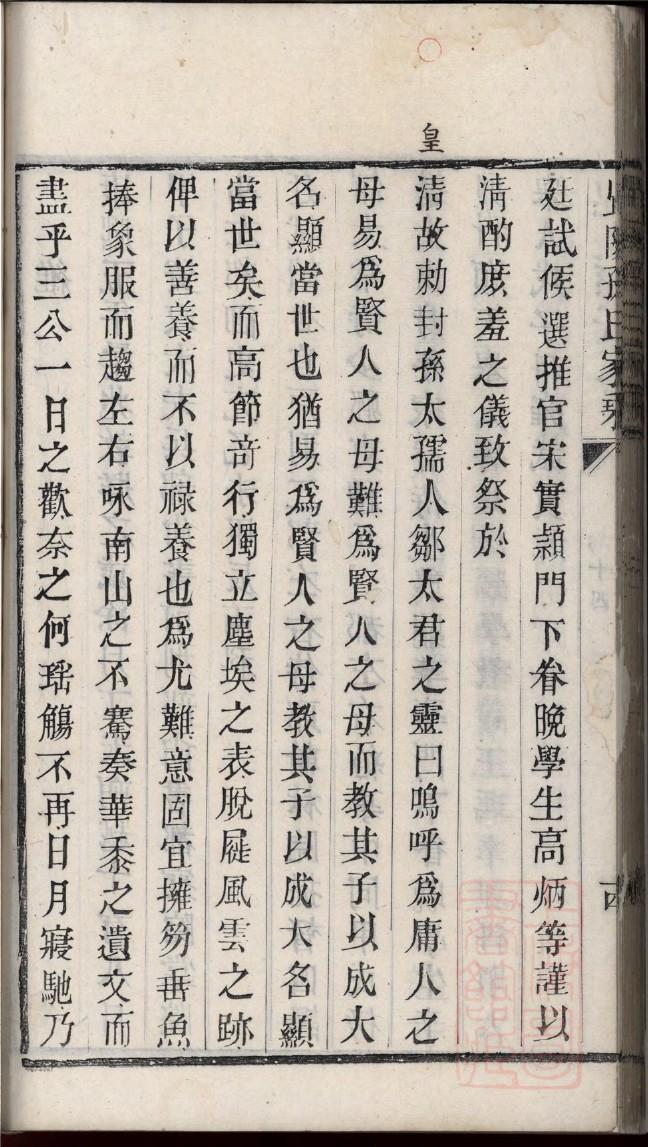 孫氏家乘
廷試候選推官宋實頴門下眷晩學生高炳等謹以
清酌庶羞之儀致祭於
皇
清故勅封孫太孺人鄒太君之靈曰嗚呼爲庸人之
母易爲賢人之母難爲賢人之母而教其子以成大
名顯當世也猶易爲賢人之母教其子以成大名顯
當世矣而高節竒行獨立塵埃之表脫屣風雲之跡
俾以善養而不以禄養也爲尤難意固宜擁笏垂魚
捧象服而趨左右咏南山之不騫奏華黍之遺文而
盡乎三公一日之歡奈之何瑶觴不再日月寖馳乃